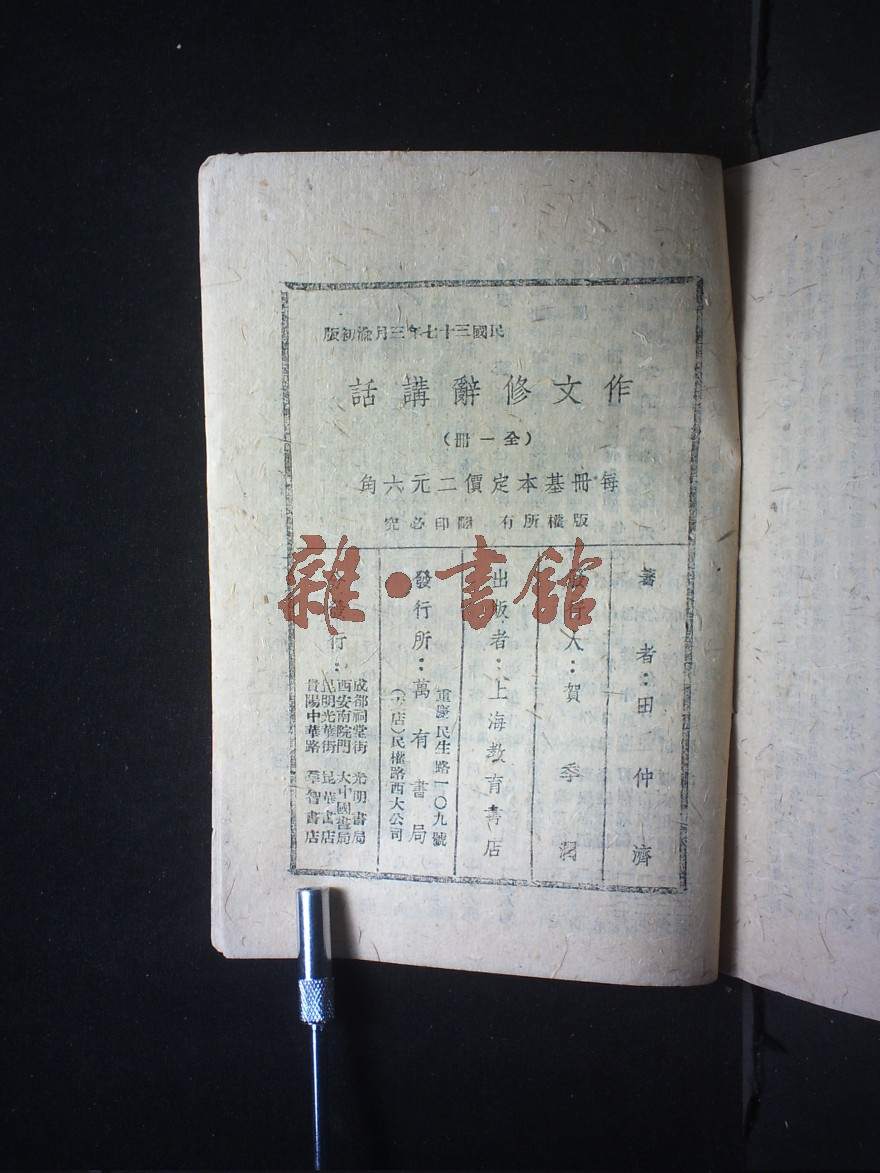 民國三十七年三月渝初版
作文修辭講話
(全一冊)
每冊基本定價二元六角
版權所有 翻印必究
著者:田仲濟
發行人:賀季潤
出版者:上海教育書店
重慶民生路一〇九號
發行所:萬有書局
民權路西大公司
行:
成都祠堂街 光明書局
西安南院門 大中國書局
昆明光華街 昆華書店
貴陽中華路 羣智書店
雜·書館